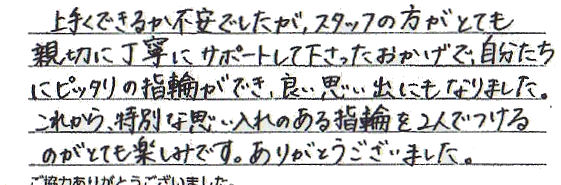 上手くできるか不安でしたが、スタッフの方がとても
親切に丁寧にサポートして下さったおかげで、自分たち
にピッタリの指輪ができ、良い思い出にもなりました。
これから、特別な思い入れのある指輪を2人でつける
のがとても楽しみです。ありがとうございました。
ご協力ありがとうございました。